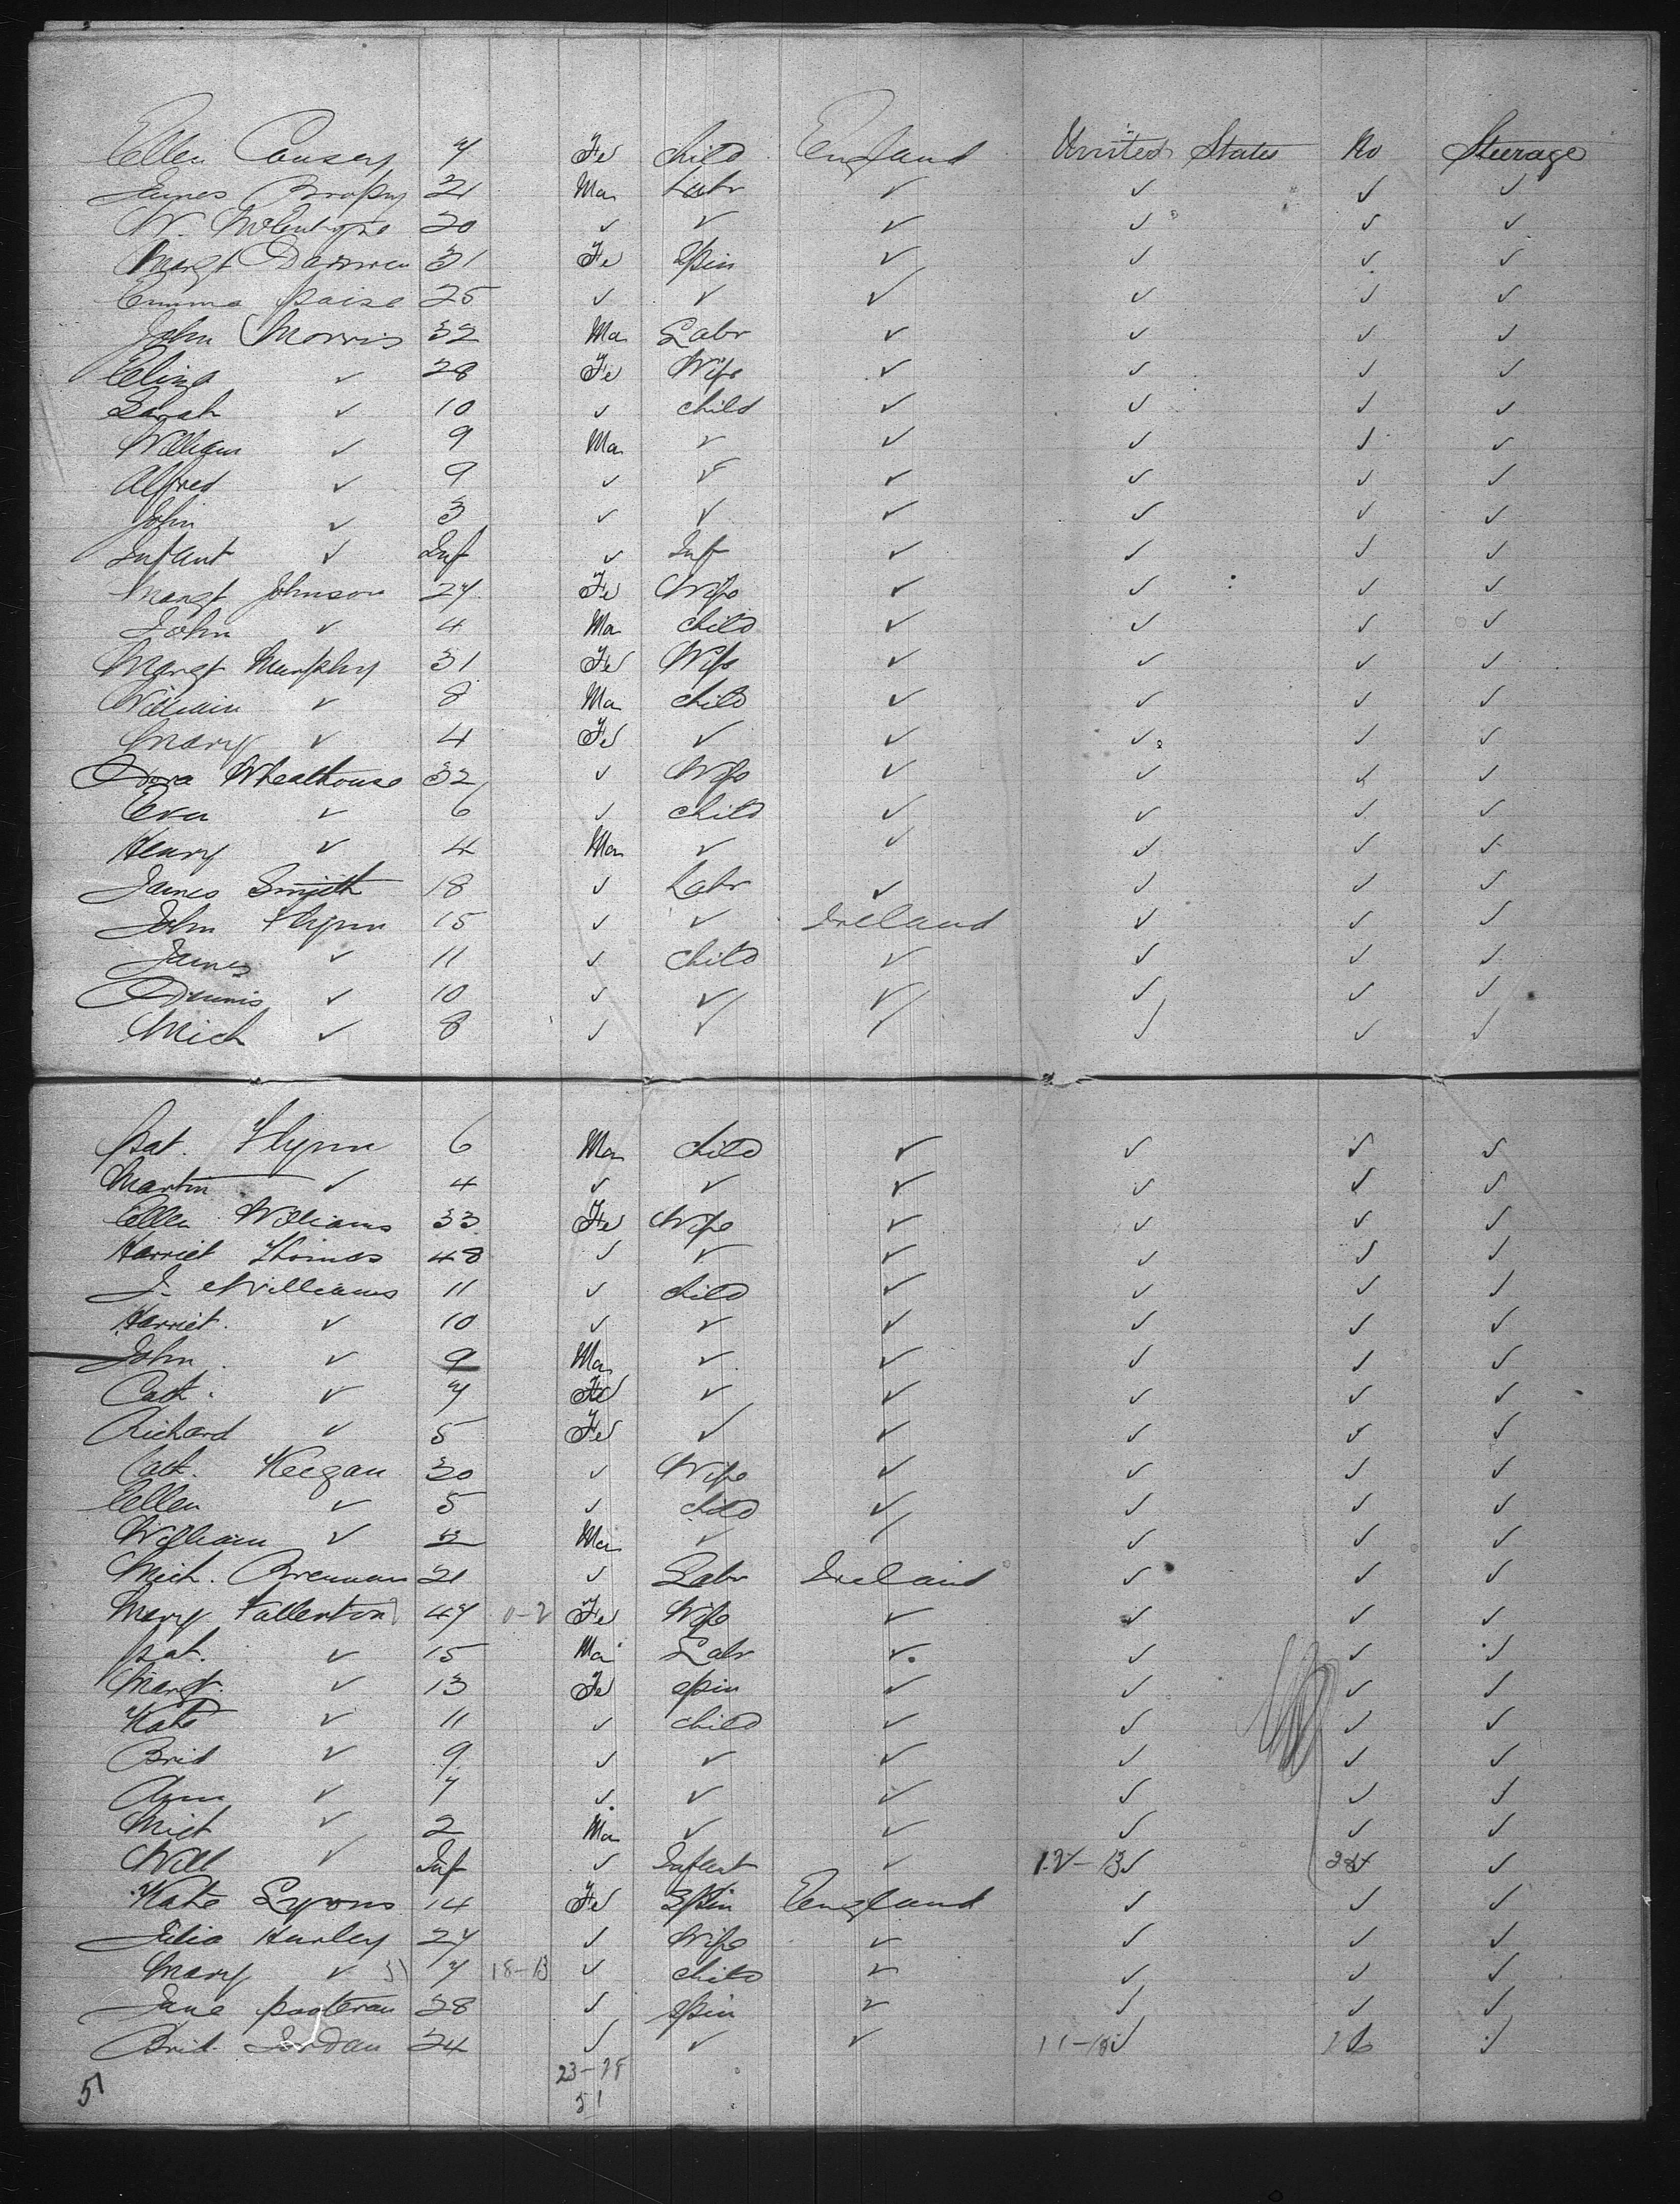 Ellen Causey 7 Fe child England United States No Steerage
James Brophy 21 Ma Labr ✓ ✓ ✓ ✓
W. McEntyre 20 ✓ ✓ ✓ ✓ ✓ ✓
Margt 31 Fe Spin ✓ ✓ ✓ ✓
Emma 25 ✓ ✓ ✓ ✓ ✓ ✓
John Morris 32 Ma Labr ✓ ✓ ✓ ✓
Eliza ✓ 28 Fe Wife ✓ ✓ ✓ ✓
Sarah ✓ 10 ✓ child ✓ ✓ ✓ ✓
William ✓ 9 Ma ✓ ✓ ✓ ✓ ✓
Alfred ✓ 9 ✓ ✓ ✓ ✓ ✓ ✓
John ✓ 3 ✓ ✓ ✓ ✓ ✓ ✓
Infant ✓ Inf ✓ Inf ✓ ✓ ✓ ✓
Margt Johnson 27 Fe Wife ✓ ✓ ✓ ✓
John ✓ 4 Ma child ✓ ✓ ✓ ✓
Margt Murphy 31 Fe Wife ✓ ✓ ✓ ✓
William ✓ 8 Ma child ✓ ✓ ✓ ✓
Mary ✓ 4 Fe ✓ ✓ ✓ ✓ ✓
Dora Whealhouse 32 ✓ Wife ✓ ✓ ✓ ✓
Eva ✓ 6 ✓ child ✓ ✓ ✓ ✓
Henry ✓ 4 Ma ✓ ✓ ✓ ✓ ✓
James Smith 18 ✓ Labr ✓ ✓ ✓ ✓
John Flynn 15 ✓ ✓ Ireland ✓ ✓ ✓
James ✓ 11 ✓ child ✓ ✓ ✓ ✓
Dennis ✓ 10 ✓ ✓ ✓ ✓ ✓ ✓
Mich ✓ 8 ✓ ✓ ✓ ✓ ✓ ✓
Pat. Flynn 6 Ma child ✓ ✓ ✓ ✓
Martin ✓ 4 ✓ ✓ ✓ ✓ ✓ ✓
Ellen Williams 33 Fe Wife ✓ ✓ ✓ ✓
Harriet Thomas 48 ✓ ✓ ✓ ✓ ✓ ✓
J. Williams 11 ✓ child ✓ ✓ ✓ ✓
Harriet ✓ 10 ✓ ✓ ✓ ✓ ✓ ✓
John ✓ 9 Ma ✓ ✓ ✓ ✓ ✓
Cath. ✓ 7 Fe ✓ ✓ ✓ ✓ ✓
Richard ✓ 5 Fe ✓ ✓ ✓ ✓ ✓
Cath. Keegan 30 ✓ Wife ✓ ✓ ✓ ✓
Ellen ✓ 5 ✓ child ✓ ✓ ✓ ✓
William ✓ Ma ✓ ✓ ✓ ✓ ✓
Mich. Brennan 21 ✓ Labr Ireland ✓ ✓ ✓
Mary Fallerton 47 0-2 Fe Wife ✓ ✓ ✓ ✓
Pat. ✓ 15 Ma Labr ✓ ✓ ✓ ✓
Margt. ✓ 13 Fe Spin ✓ ✓ ✓ ✓
Kate ✓ 11 ✓ child ✓ ✓ ✓ ✓
Brid ✓ 9 ✓ ✓ ✓ ✓ ✓ ✓
Ann ✓ 7 ✓ ✓ ✓ ✓ ✓ ✓
Mich ✓ 2 Ma ✓ ✓ ✓ ✓ ✓
Will ✓ Inf ✓ Infant ✓ 12-13 ✓ ✓ ✓
Kate Lyons 14 Fe Spin England ✓ ✓ ✓
Julia Hurley 27 ✓ Wife ✓ ✓ ✓ ✓
Mary ✓ 7 18-13 ✓ child ✓ ✓ ✓ ✓
Jane 28 ✓ Spin ✓ ✓ ✓ ✓
Brid. Jordan 24 ✓ ✓ ✓ ✓ ✓
23-28
51 51